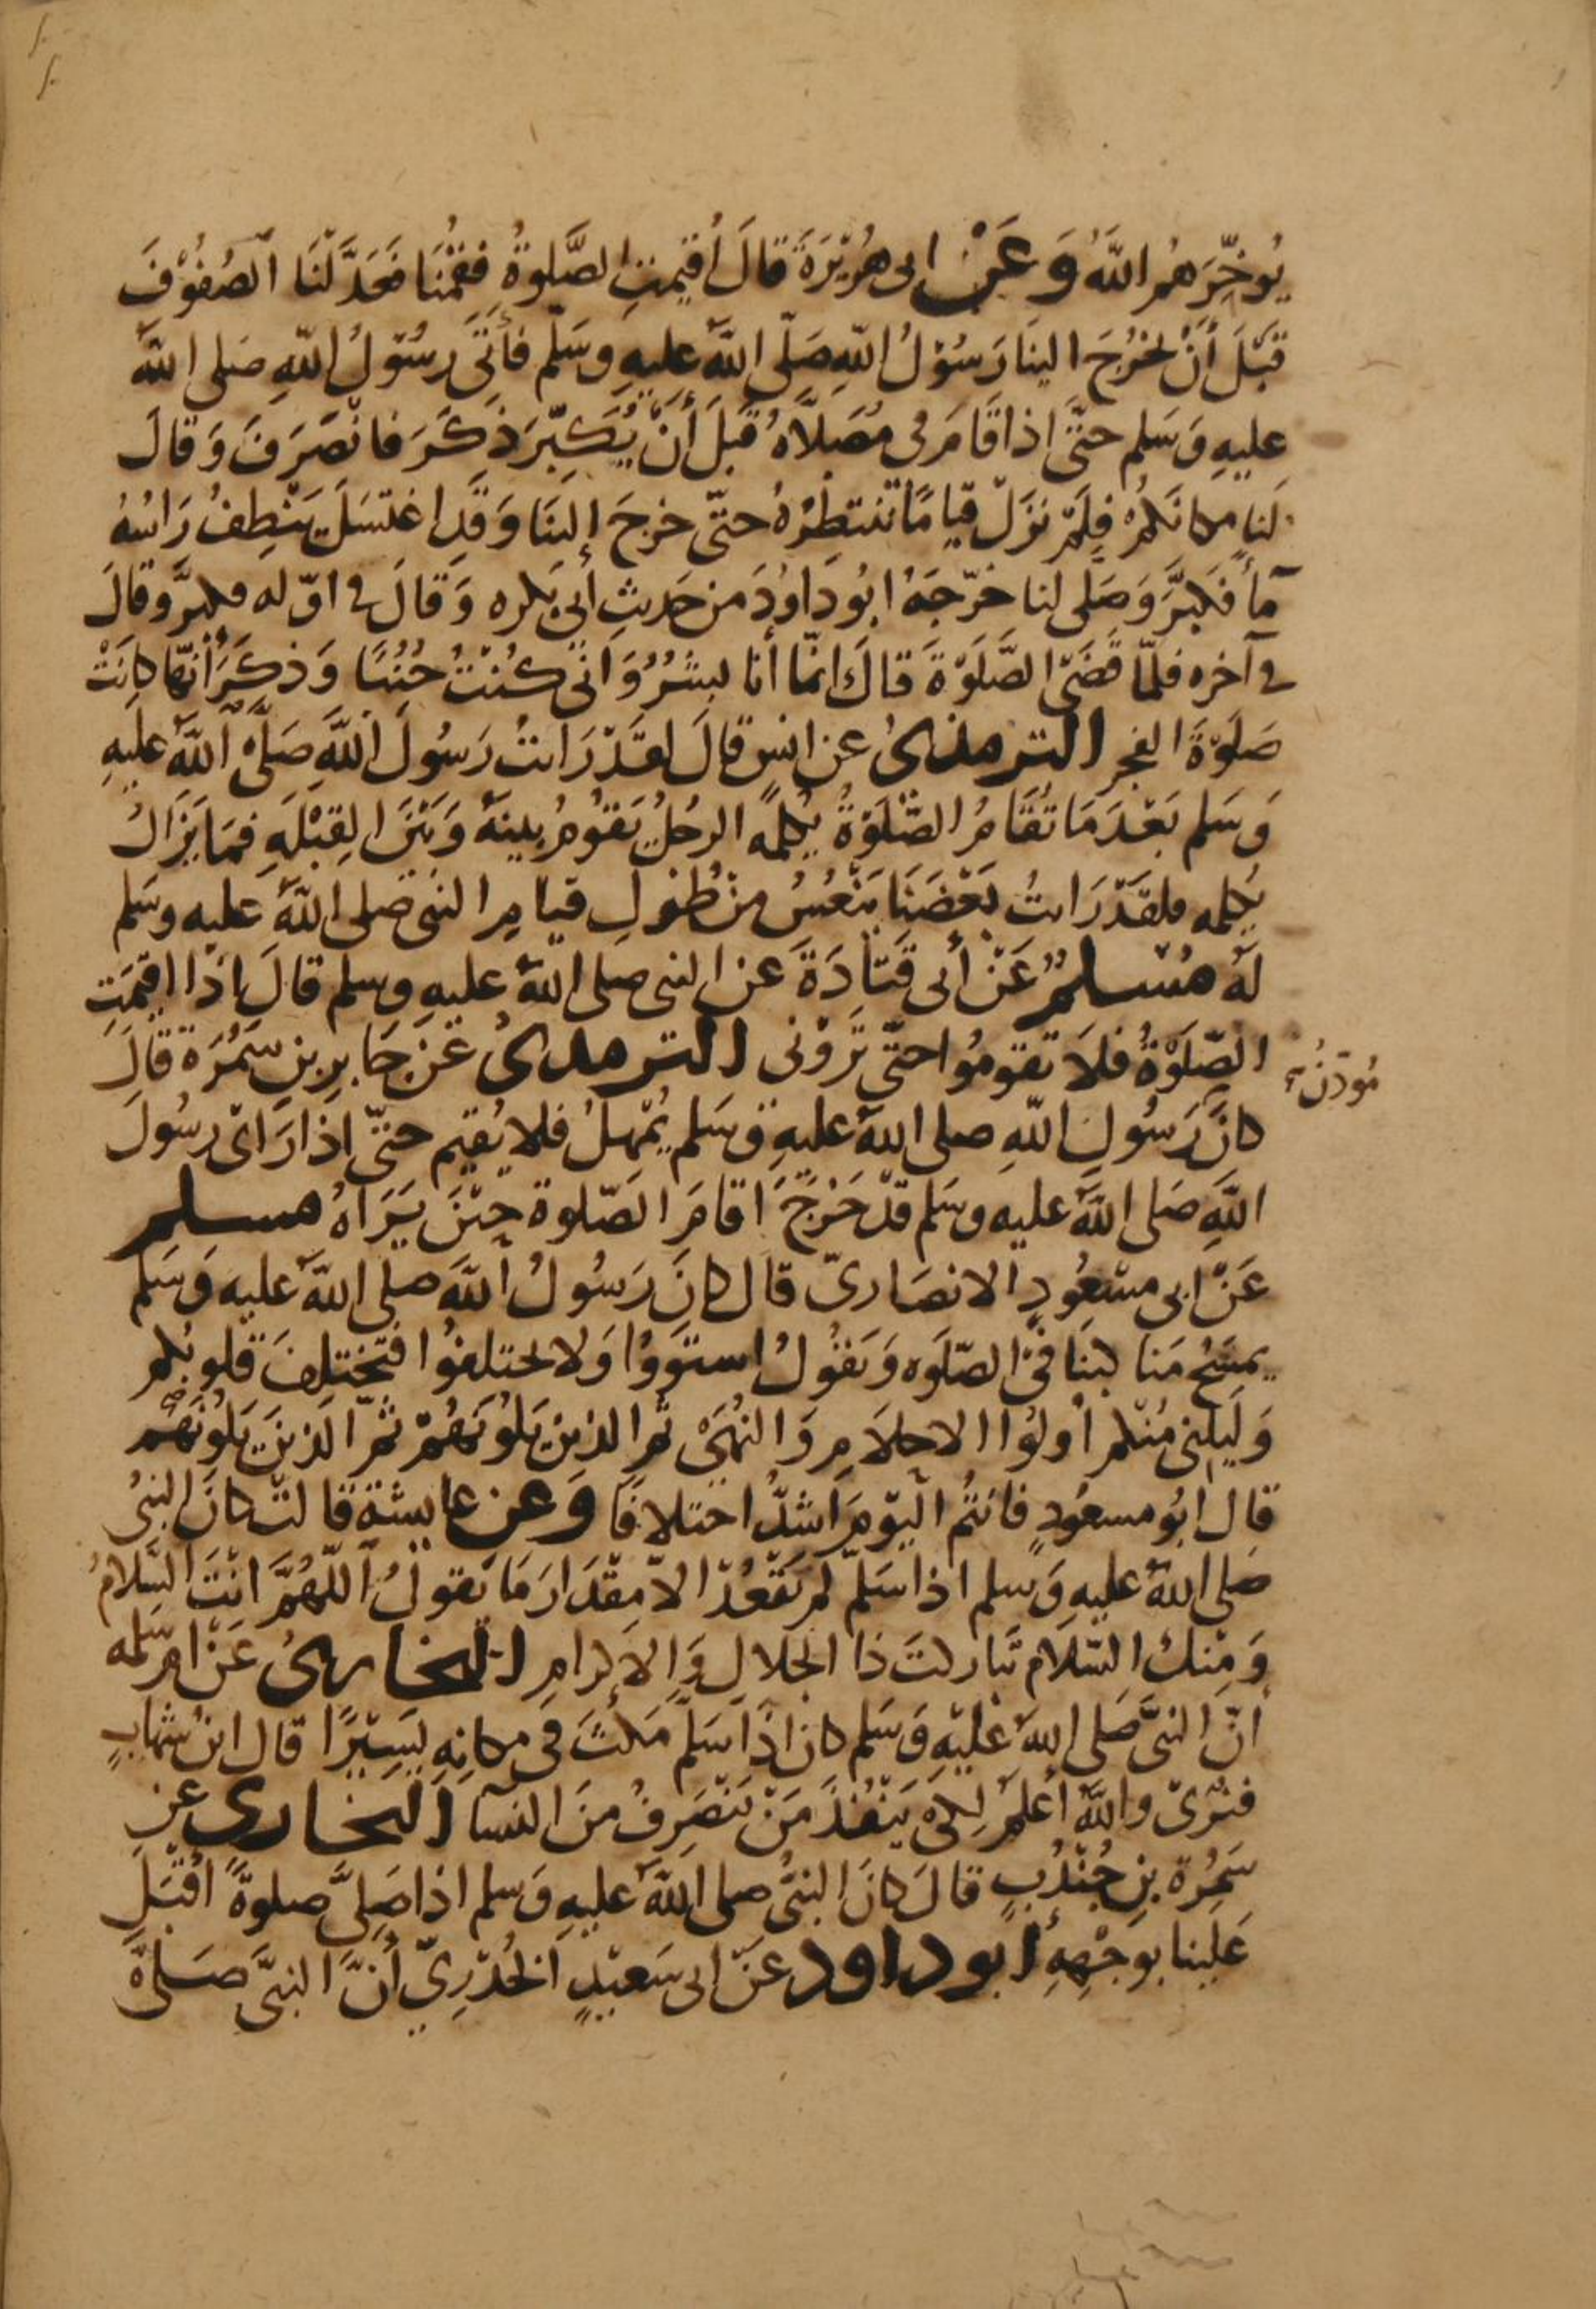 يُوخِّرَهُم اللَّهُ وَعَنْ ابى هُرَيْرَةَ قالَ اُقيمتِ الصَّلوةُ فقُمْنَا فعَدَّلْنَا الصُفُوْفَ
قَبْلَ أنْ يخرُجَ الينَا رَسُوْلُ اللّهِ صَلّى اللَّهُ عليهِ وسَلّم فأتَى رسُوْلُ اللّهِ صَلى اللَّهُ
عليهِ وَسَلم حتَّى اذا قَامَ فى مُصَلاَّهُ قَبلَ أنْ يُكَبِّرَ ذَكَرَ فانْصَرَفَ وَقالَ
لَنا مكانَكُمْ فلَمْ نزَلْ قيامًا ننتظِرُهُ حتّى خرجَ إلينَا وَقَدِ اغتسَلَ يَنْطِفُ رَاسُهُ
مآءً فكبَّرَ وَصَلى لنا خرّجَهُ ابُو دَاوُدَ من حَديثِ أبي بكره وَقالَ في اوّله فكبَّر وقالَ
في آخره فلمّا قَضَى الصَّلَوْةَ قالَ انّما أنا بشَرٌ وَانى كُنْتُ جُنُبًا وَذكَرَ أنّها كانَتْ
صَلَوْةَ الفجر الترمذىُ عن انسٍ قالَ لقَدْ رَايتُ رَسُولَ اللَّهِ صَلَّى اللَّهُ عليهِ
وَسَلم بَعْدَ مَا تُقَامُ الصَّلَوْةُ يُكلّمه الرجُلُ يَقُومُ بينَهُ وَبَيْنَ القِبْلَةِ فمَا يَزَالُ
يُكلمه فلقَدْ رَايتُ بَعْضَنَا يَنْعُسُ مِنْ طُوْلِ قيامِ النبى صلى اللَّهُ عليه وسَلم
لَهُ مُسْلمٌ عَنْ أبى قَتَادَةَ عن النبى صلى اللَّهُ عليهِ وسلم قالَ اذَا اقيمَتِ
الصّلَوْةُ فلاَ تقومُوا حتّى تَرَوْنى الترمذىُ عَنْ جَابرِ بنِ سَمُرَة قالَ
مُوذّنُ
كانَ رَسُولِ اللّهِ صلى اللَّهُ عليهِ وَسَلم يُمْهلُ فلا يُقيم حتّى اذا رَاىْ رسُولَ
اللَّهِ صَلى اللَّهُ عليه وسَلم قدْ خَرَجَ اقامَ الصّلوة حِيْنَ يَرَاهُ مسلم
عَنْ ابى مسْعُودٍ الانصَارىّ قالَ كانَ رَسُولُ اللَّهِ صلى اللَّهُ عليه وَسَلم
يمسَحُ مَنا كبنَا فىْ الصّلَوه وَيَقُولُ استَوُوْا وَلا تختلفوُا فتَخْتلِفَ قلوبُكم
وَليَلِنى مُنْكم أولُوْا الاحلاَمِ وَالنُهىَ ثمّ الذين يَلُونَهُمْ ثمّ الذينَ يَلُونَهُمْ
قال ابُو مسعُودٍ فانتُم اليَوْمَ اشدُّ اختلافًا وَعن عايشةَ قالتْ كانَ النبىُ
صَلى اللَّهُ عليهِ وَسلم اذا سَلّم لم يَقْعُدْ الاّ مِقْدَارَ مَا يَقولُ اللَّهُمَّ انْتَ السَّلامُ
وَمِنْكَ السَّلام تَباركتَ ذا الجلالِ وَالاكرامِ البخارىُ عَنْ ام سَلمه
أنّ النبىَّ صَلى اللَّهُ عَليْهِ وَسَلم كان اذَا سَلّم مَكثَ فى مكانِهِ يَسيْرًا قال ابن شهابٍ
فنُرَىْ واللَّهُ أعلم لِكىْ يَنفُذَ مَنْ يَنْصَرِفُ منَ النسآ البخارى عن
سَمُرة بنِ جُنْدُبٍ قالَ كانَ النبىُّ صلى اللَّهُ عليهِ وَسلم اذا صَلّى صلوةً اقبَلَ
عَلينا بوجْهِهِ أبو داود عَنْ ابى سَعيْدٍ الخُدْرِيّ أنَّ النبىَّ صَلى